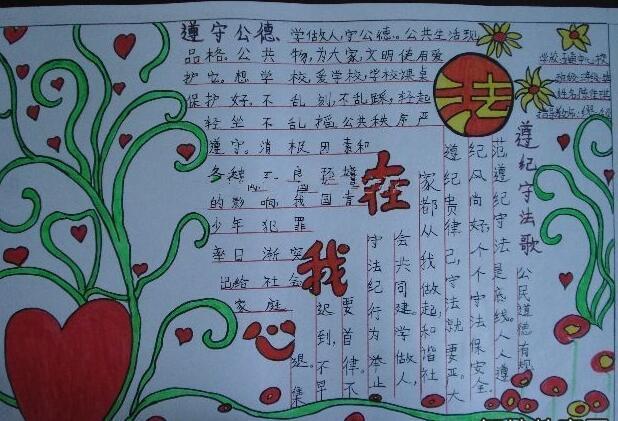 遵守公德
学做人,守公德。公共生活现
品格。公共物,为大家,文明使用爱
护它。想学校,爱学校,学校课桌
保护好。不乱刻,不乱踩,轻起
轻坐不乱摇。公共秩序严
遵守。消极因素和
的影响。我国青
少年犯罪
率日渐突
出给社会
家庭
法
在
我
心
遵纪守法歌
公民道德有规
范,遵纪守法是底线。人人遵
纪风尚好,个个守法保安全。
遵纪贵律己,守法就要严。大
家都从我做起,和谐社
会共同建。学做人,
守法纪,行为举止
要首律。不
迟到,不早
退。集